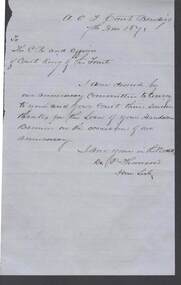 A. O. F. Court Bendigo
7th Nov 1871
To
The C. R. and Officers
of Court King of the Forest
I am desired by
our anniversary Committee to convey
to you and your Court their sincere
thanks for the Loan of your Handsome
Banner on the occasion of our
anniversary
I am yours in
Thomson
Hon Sec